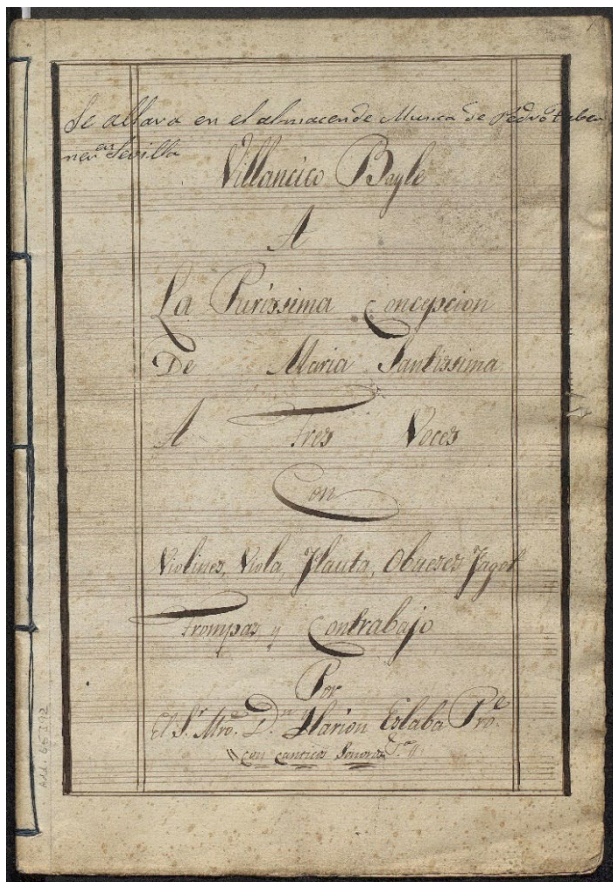 Se allara en el almacen de Musica de Pedro
en Sevilla
Villancico Bayle
A
La Purissima Concepcion
De Maria Santissima
A Tres Voces
Con
Violines, Viola, Flauta, Obueses Fagot
Trompas, y Contrabajo
Por
El Sr. Mro. Dn. Ilarion Eslaba Pro.
con canticos Sonoros
Add. 65292